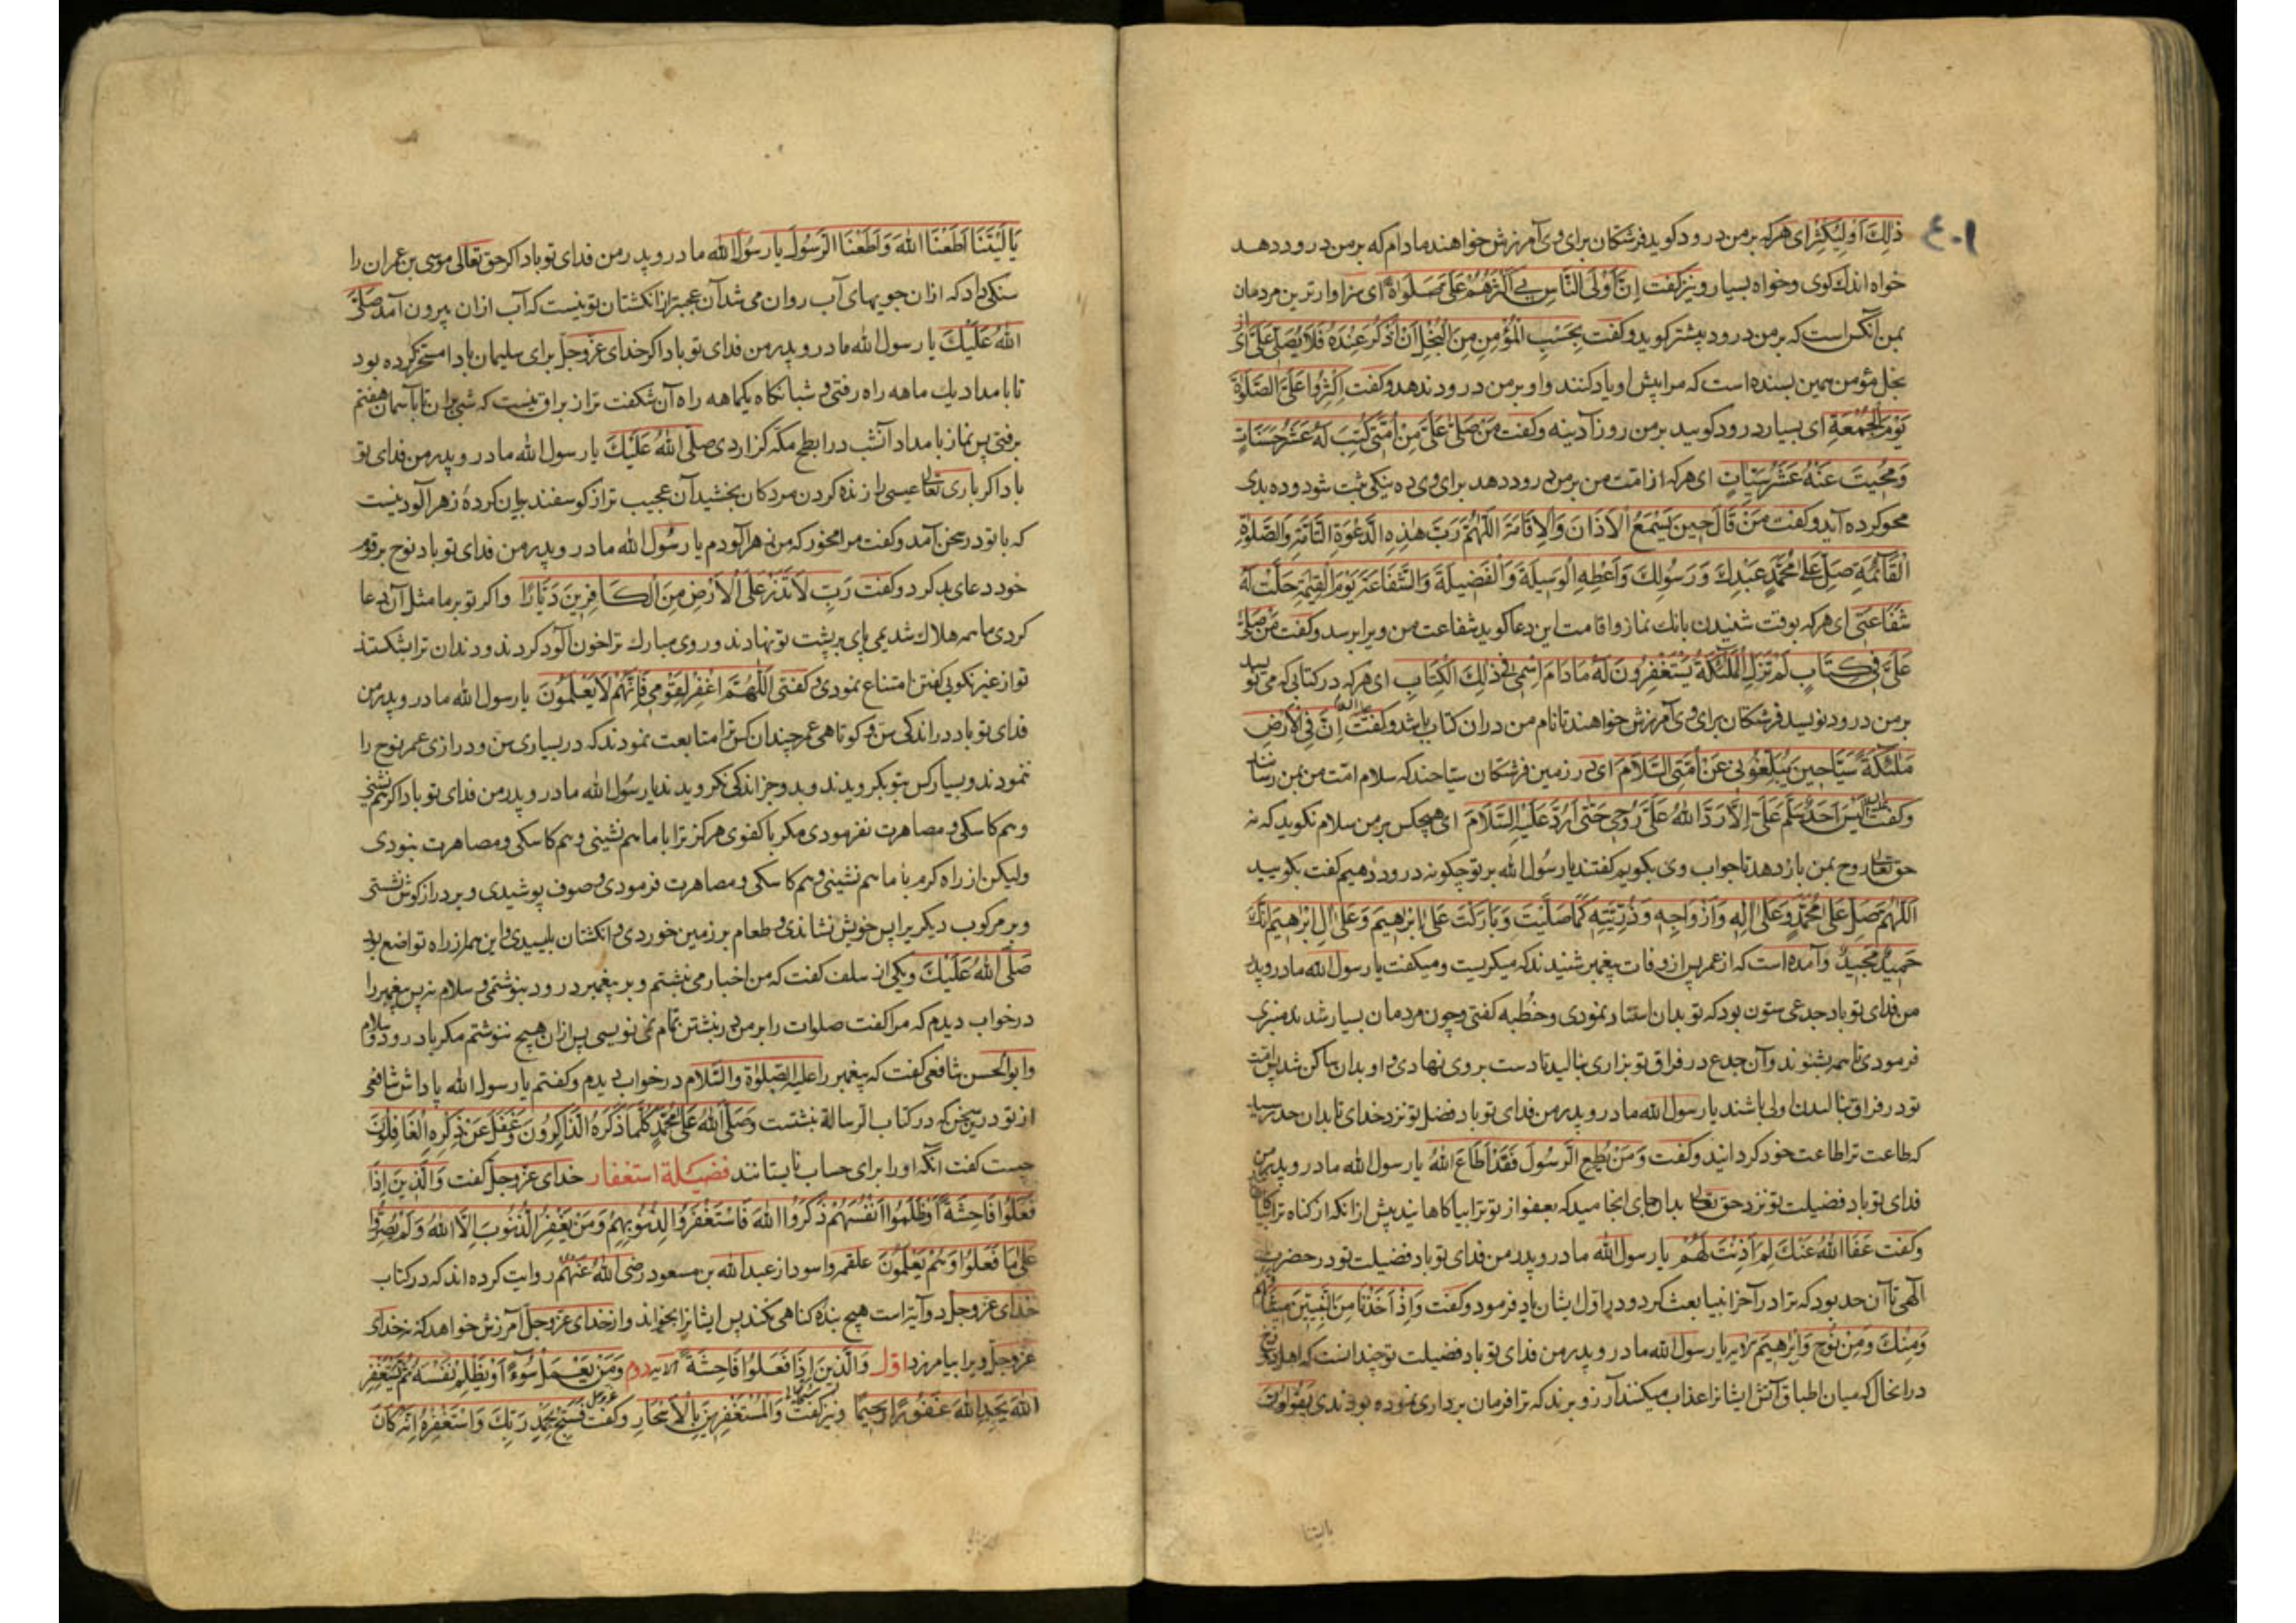 ۴۰۱
ذٰلِكَ اَوْ لِيُكْثِرْ اى هركه بر من درود كويد فرشتكان براى وى آمرزش خواهند مادام كه بر من درود دهد
خواه اندك كوى وخواه بسيار ونيز كفت اِنَّ اَوْلَى النَّاسِ بِي اَكْثَرُهُمْ عَلَىَّ صَلَواةً اى سزاوارترين مردمان
بمن آنكس است كه بر من درود بيشتر كويد وكفت بِحَسْبِ الْمُؤْمِنِ مِنَ الْبُخْلِ اَنْ اُذْكَرَ عِنْدَهُ فَلَا يُصَلِّى عَلَىَّ اى از
بخل مؤمن همين بسنده است كه مرا پيش او ياد كنند واو بر من درود ندهد وكفت اَكْثِرُوا عَلَىَّ الصَّلٰوةَ
يَوْمَ الْجُمُعَةِ اى بسيار درود كوييد بر من روز آدينه وكفت مَنْ صَلّٰى عَلَىَّ مِنْ اُمَّتِى كُتِبَ لَهُ عَشْرُ حَسَنَاتٍ
وَمُحِيَتْ عَنْهُ عَشْرُ سَيِّاٰتٍ اى هركه از امت من بر من درود دهد براى وى ده نيكى ثبت شود وده بدى
محو كرده آيد وكفت مَنْ قَالَ حِينَ يَسْمَعُ الْاَذَانَ وَالْاِقَامَةَ اَللّٰهُمَّ رَبَّ هٰذِهِ الدَّعْوَةِ التَّامَّةِ وَالصَّلٰوةِ
الْقَائِمَةِ صَلِّ عَلٰى مُحَمَّدٍ عَبْدِكَ وَرَسُولِكَ وَاَعْطِهِ الْوَسِيلَةَ وَالْفَضِيلَةَ وَالشَّفَاعَةَ يَوْمَ الْقِيٰمَةِ حَلَّتْ لَهُ
شَفَاعَتِى اى هركه بوقت شنيدن بانك نماز واقامت اين دعا كويد شفاعت من ويرا برسد وكفت مَنْ صَلّٰى
عَلَىَّ فِى كِتَابٍ لَمْ تَزَلِ الْمَلٰئِكَةُ يَسْتَغْفِرُونَ لَهُ مَادَامَ اِسْمِى فِى ذٰلِكَ الْكِتَابِ اى هركه در كتابى كه مى نويسد
بر من درود نويسد فرشتكان براى وى آمرزش خواهند تا نام من دران كتاب باشد وكفت اِنَّ فِى الْاَرْضِ
مَلٰئِكَةً سَيَّاحِينَ يُبَلِّغُونِى عَنْ اُمَّتِى السَّلَامَ اى در زمين فرشتكان سياحند كه سلام امّت من بمن رسانند
وكفت لَيْسَ اَحَدٌ يُسَلِّمُ عَلَىَّ اِلَّا رَدَّ اللّٰهُ عَلَىَّ رُوحِى حَتّٰى اَرُدَّ عَلَيْهِ السَّلَامَ اى هيچكس بر من سلام نكويد كه نه
حق تعالى روح بمن باز دهد تا جواب وى بكويم كفتند يا رسول الله بر تو چكونه درود دهيم كفت بكوييد
اَللّٰهُمَّ صَلِّ عَلٰى مُحَمَّدٍ وَعَلٰى اٰلِهِ وَاَزْوَاجِهِ وَذُرِّيَّتِهِ كَمَا صَلَّيْتَ وَبَارَكْتَ عَلٰى اِبْرٰهِيمَ وَعَلٰى اٰلِ اِبْرٰهِيمَ اِنَّكَ
حَمِيدٌ مَجِيدٌ وآمده است كه از عمر پس از وفات پيغمبر شنيدند كه ميكريست وميكفت يا رسول الله مادر وپدر
من فداى تو باد جذعى ستون بود كه تو بدان استناد نمودى وخطبه كفتى وچون مردمان بسيار شدند منبرى
فرمودى تا همه بشنوند وآن جذع در فراق تو بزارى بناليد تا دست بر وى نهادى واو بدان ساكن شد پس امت
تو در فراق بناليدن اولى باشند يا رسول الله مادر وپدر من فداى تو باد فضل تو نزد خداى تا بدان حد رسيد
كه طاعت ترا طاعت خود كردانيد وكفت وَمَنْ يُطِعِ الرَّسُولَ فَقَدْ اَطَاعَ اللّٰهَ يا رسول الله مادر وپدر من
فداى تو باد فضيلت تو نزد حق تعالى بدان جاى انجاميد كه بعفو از تو ترا بياكاهانيد پيش از انكه از كناه ترا
وكفت عَفَا اللّٰهُ عَنْكَ لِمَ اَذِنْتَ لَهُمْ يا رسول الله مادر وپدر من فداى تو باد فضيلت تو در حضرت
الٓهى تا آن حد بود كه ترا در آخر انبيا بعث كرد ودر اول ايشان ياد فرمود وكفت وَاِذْ اَخَذْنَا مِنَ النَّبِيِّينَ مِيثَاقَهُمْ
وَمِنْكَ وَمِنْ نُوحٍ وَاِبْرٰهِيمَ الآيه يا رسول الله مادر وپدر من فداى تو باد فضيلت تو چندانست كه اهل دوزخ
درانحال كه ميان اطباق آتش ايشانرا عذاب ميكنند آرزو برند كه ترا فرمان بردارى نموده بودندى يَقُولُونَ
ياليتنا
يَا لَيْتَنَا اَطَعْنَا اللّٰهَ وَاَطَعْنَا الرَّسُولَ يا رسول الله مادر وپدر من فداى تو باد اكر حق تعالى موسى بن عمران را
سنكى داد كه ازان جويهاى آب روان مى شد آن عجبتر از انكشتان تو نيست كه آب ازان بيرون آمد صَلَّى
اللّٰهُ عَلَيْكَ يا رسول الله مادر وپدر من فداى تو باد اكر خداى عزوجل براى سليمان باد را مسخّر كرده بود
تا بامداد يك ماهه راه رفتى وشبانكاه يكماهه راه آن شكفت تر از براق نيست كه شبى بران تا بآسمان هفتم
برفتى پس نماز بامداد آنشب در ابطح مكّه كزاردى صلّى اللّٰهُ عَلَيْكَ يا رسول الله مادر وپدر من فداى تو
باد اكر بارى تعالى عيسى را زنده كردن مردكان بخشيد آن عجيب تر از كوسفند بريان كردهٔ زهرآلود نيست
كه با تو در سخن آمد وكفت مرا مخور كه من زهرآلودم يا رسول الله مادر وپدر من فداى تو باد نوح بر قوم
خود دعاى بد كرد وكفت رَبِّ لَا تَذَرْ عَلَى الْاَرْضِ مِنَ الْكَافِرِينَ دَيَّارًا واكر تو بر ما مثل آن دعا
كردى ما همه هلاك شديمى پاى بر پشت تو نهادند وروى مبارك ترا خون آلود كردند ودندان ترا بشكستند
تو از غير نكويى كفتن امتناع نمودى وكفتى اَللّٰهُمَّ اغْفِرْ لِقَوْمِى فَاِنَّهُمْ لَا يَعْلَمُونَ يا رسول الله مادر وپدر من
فداى تو باد در اندكى سن وكوتاهى عمر چندان كس ترا متابعت نمودند كه در بسيارى سن ودرازى عمر نوح را
ننمودند وبسيار كس بتو بكرويدند وبدو جز اندكى نكرويدند يا رسول الله مادر وپدر من فداى تو باد اكر هم نشينى
وهم كاسكى ومصاهرت نفرمودى مكر با كفوى هركز ترا با ما هم نشينى وهم كاسكى ومصاهرت نبودى
وليكن از راه كرم با ما هم نشينى وهم كاسكى ومصاهرت فرمودى وصوف پوشيدى وبر درازكوش نشستى
وبر مركوب ديكريرا پس خويش نشاندى وطعام بر زمين خوردى وانكشتان بليسيدى واين همه از راه تواضع بود
صَلَّى اللّٰهُ عَلَيْكَ ويكى از سلف كفت كه من اخبار مى نبشتم وبر پيغمبر درود بنوشتمى وسلام نه پس پيغمبر را
در خواب ديدم كه مرا كفت صلوات را بر من در نبشتن تمام نمى نويسى پس ازان هيچ ننوشتم مكر با درود وسلام
وابو الحسن شافعى كفت كه پيغمبر را عليه الصلوٰة والسّلام در خواب ديدم وكفتم يا رسول الله پاداش شافعى
از تو درين سخن كه در كتاب الرسالة نبشتست وَصَلَّى اللّٰهُ عَلٰى مُحَمَّدٍ كُلَّمَا ذَكَرَهُ الذَّاكِرُونَ وَغَفَلَ عَنْ ذِكْرِهِ الْغَافِلُونَ
چيست كفت آنكه او را براى حساب نايستانند فضيلة استغفار خداى عزوجل كفت وَالَّذِينَ اِذَا
فَعَلُوا فَاحِشَةً اَوْ ظَلَمُوا اَنْفُسَهُمْ ذَكَرُوا اللّٰهَ فَاسْتَغْفَرُوا لِذُنُوبِهِمْ وَمَنْ يَغْفِرُ الذُّنُوبَ اِلَّا اللّٰهُ وَلَمْ يُصِرُّوا
عَلٰى مَا فَعَلُوا وَهُمْ يَعْلَمُونَ علقمه واسود از عبد الله بن مسعود رضى اللّٰهُ عَنْهُمْ روايت كرده اند كه در كتاب
خداى عزوجل دو آيتست هيچ بنده كناهى نكند پس ايشانرا بخواند واز خداى عزوجل آمرزش خواهد كه نه خداى
عزوجل ويرا بيامرزد اوّل وَالَّذِينَ اِذَا فَعَلُوا فَاحِشَةً الآيه دوم وَمَنْ يَعْمَلْ سُوءًا اَوْ يَظْلِمْ نَفْسَهُ ثُمَّ يَسْتَغْفِرِ
اللّٰهَ يَجِدِ اللّٰهَ غَفُورًا رَحِيمًا ونيز كفت وَالْمُسْتَغْفِرِينَ بِالْاَسْحَارِ وكفت عزوجل فَسَبِّحْ بِحَمْدِ رَبِّكَ وَاسْتَغْفِرْهُ اِنَّهُ كَانَ